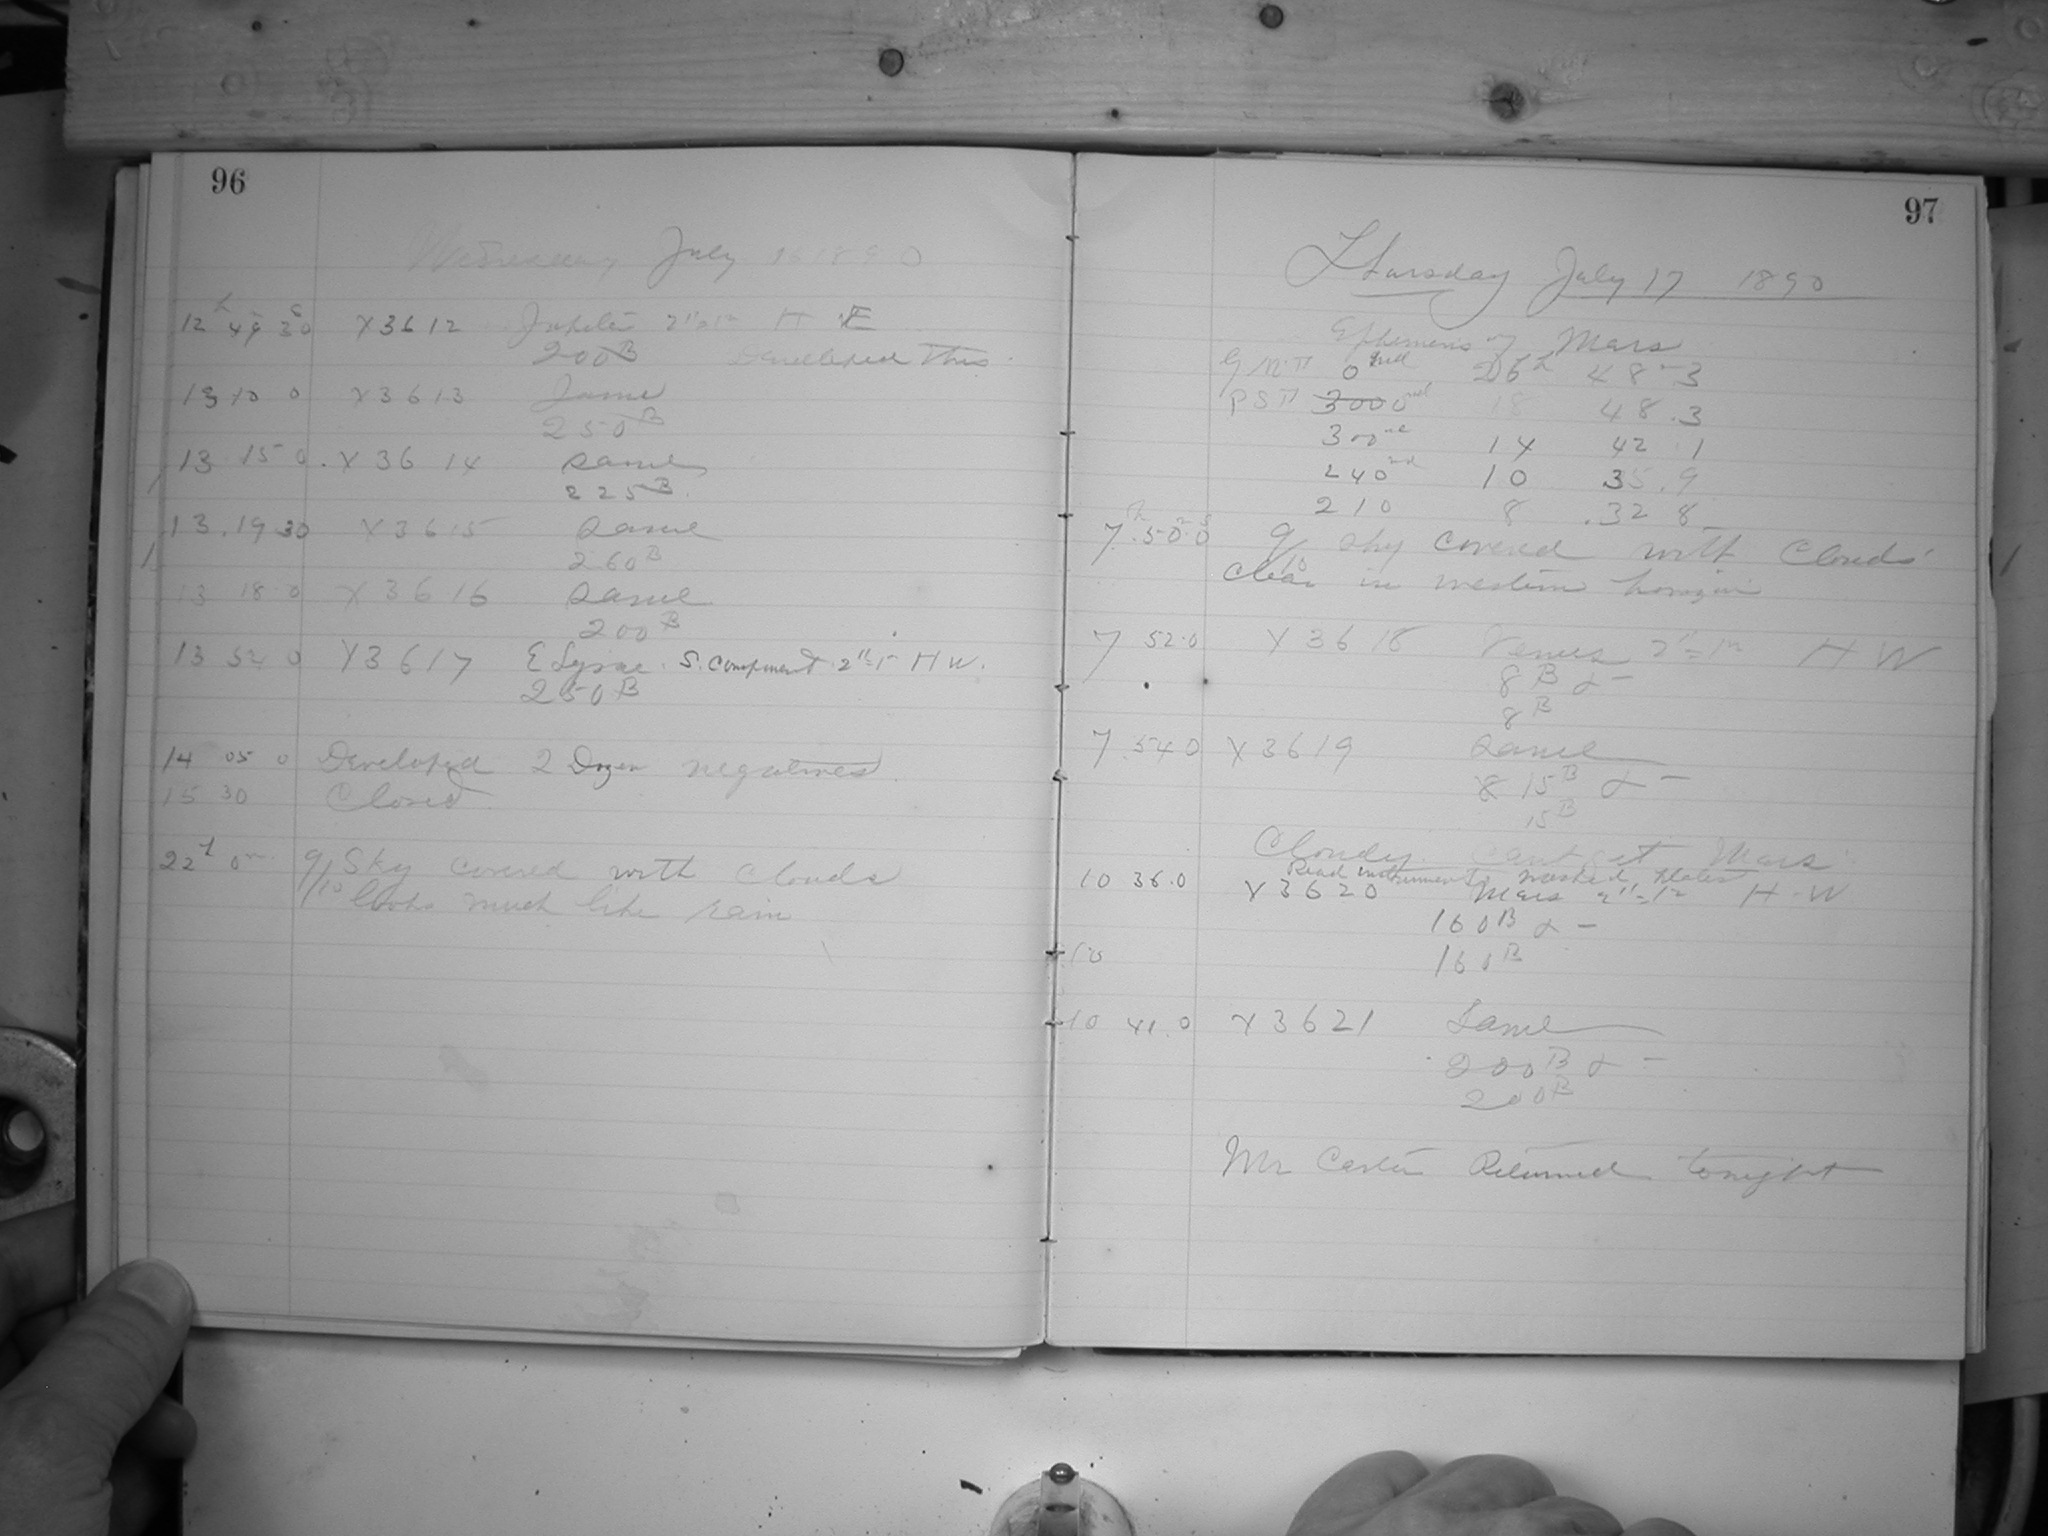 96
Wednesday July 16 1890
12h 49 30s X3612 Jupiter 2"=1m H E
200B Developed this
13 10 0 X3613 Same
250B
13 15 0 X3614 Same
225B
13 19 30 X3615 Same
260B
13 18 0 X3616 Same
200B
13 54 0 X3617 E Lyrae S. component 2"=1m H W.
250B
14 05 0 Developed 2 Dozen negatives
15 30 Closed
22h 0m 9/10 Sky covered with clouds
looks much like rain
97
Thursday July 17 1890
Ephemeris of Mars
G M T 0 48.3
P S T 3000 18 48.3
300 14 42.1
240 10 35.9
210 8 .32 8
7h 50 0s 9/10 sky covered with Clouds
clear in western horizon
7 52.0 X3618 Venus 2"=1m H W
8B & -
8B
7 54 0 X3619 Same
8 15B & -
15B
Cloudy cant get Mars
Read instruments washed plates
10 36.0 X3620 Mars 2"=1m H-W
160B & -
10 160B
10 41.0 X3621 Same
200B & -
200B
Mr Carter Returned tonight